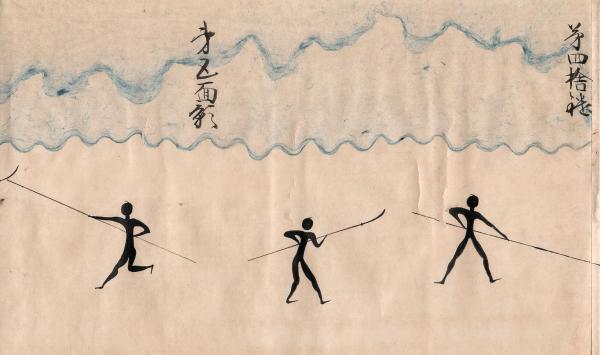 第四捨糙
第五面影